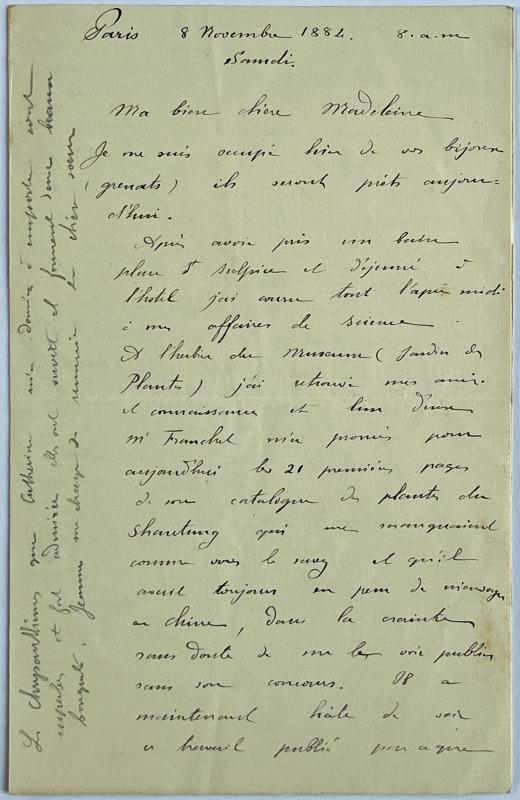 Paris 8 Novembre 1884. 8. a.m
Samdi.
Ma bien chère Madeleine
Je me suis occupé hier de vos bijoux
(grenats) ils seront prêts aujour=
d'hui.
Après avoir pris un bain
place St Sulpice et déjeuné à
l'hotel j'ai couru tout l'après midi
à mes affaires de science.
A l'herbier du Museum (Jardin des
Plantes) j'ai retrouvé mes amis
et connaissances et
Mr Franchet m'a promis pour
aujourd'hui les 21 premières pages
de son catalogue des plantes du
Shantung qui me manquaient
comme vous le savez et qu'il
avait toujours eu peur de m'envoyer
en Chine, dans la crainte
sans doute de me les voir publier
sans son concours. Il a
maintenant hâte de voir
ce travail publié
Les Chrysanthèmes que Catherine m'a donnés à emporter sont
superbes et fort admirés elles ont ouvert et forment deux beaux
bouquets. Jeanne me charge de remercier la chère soeur